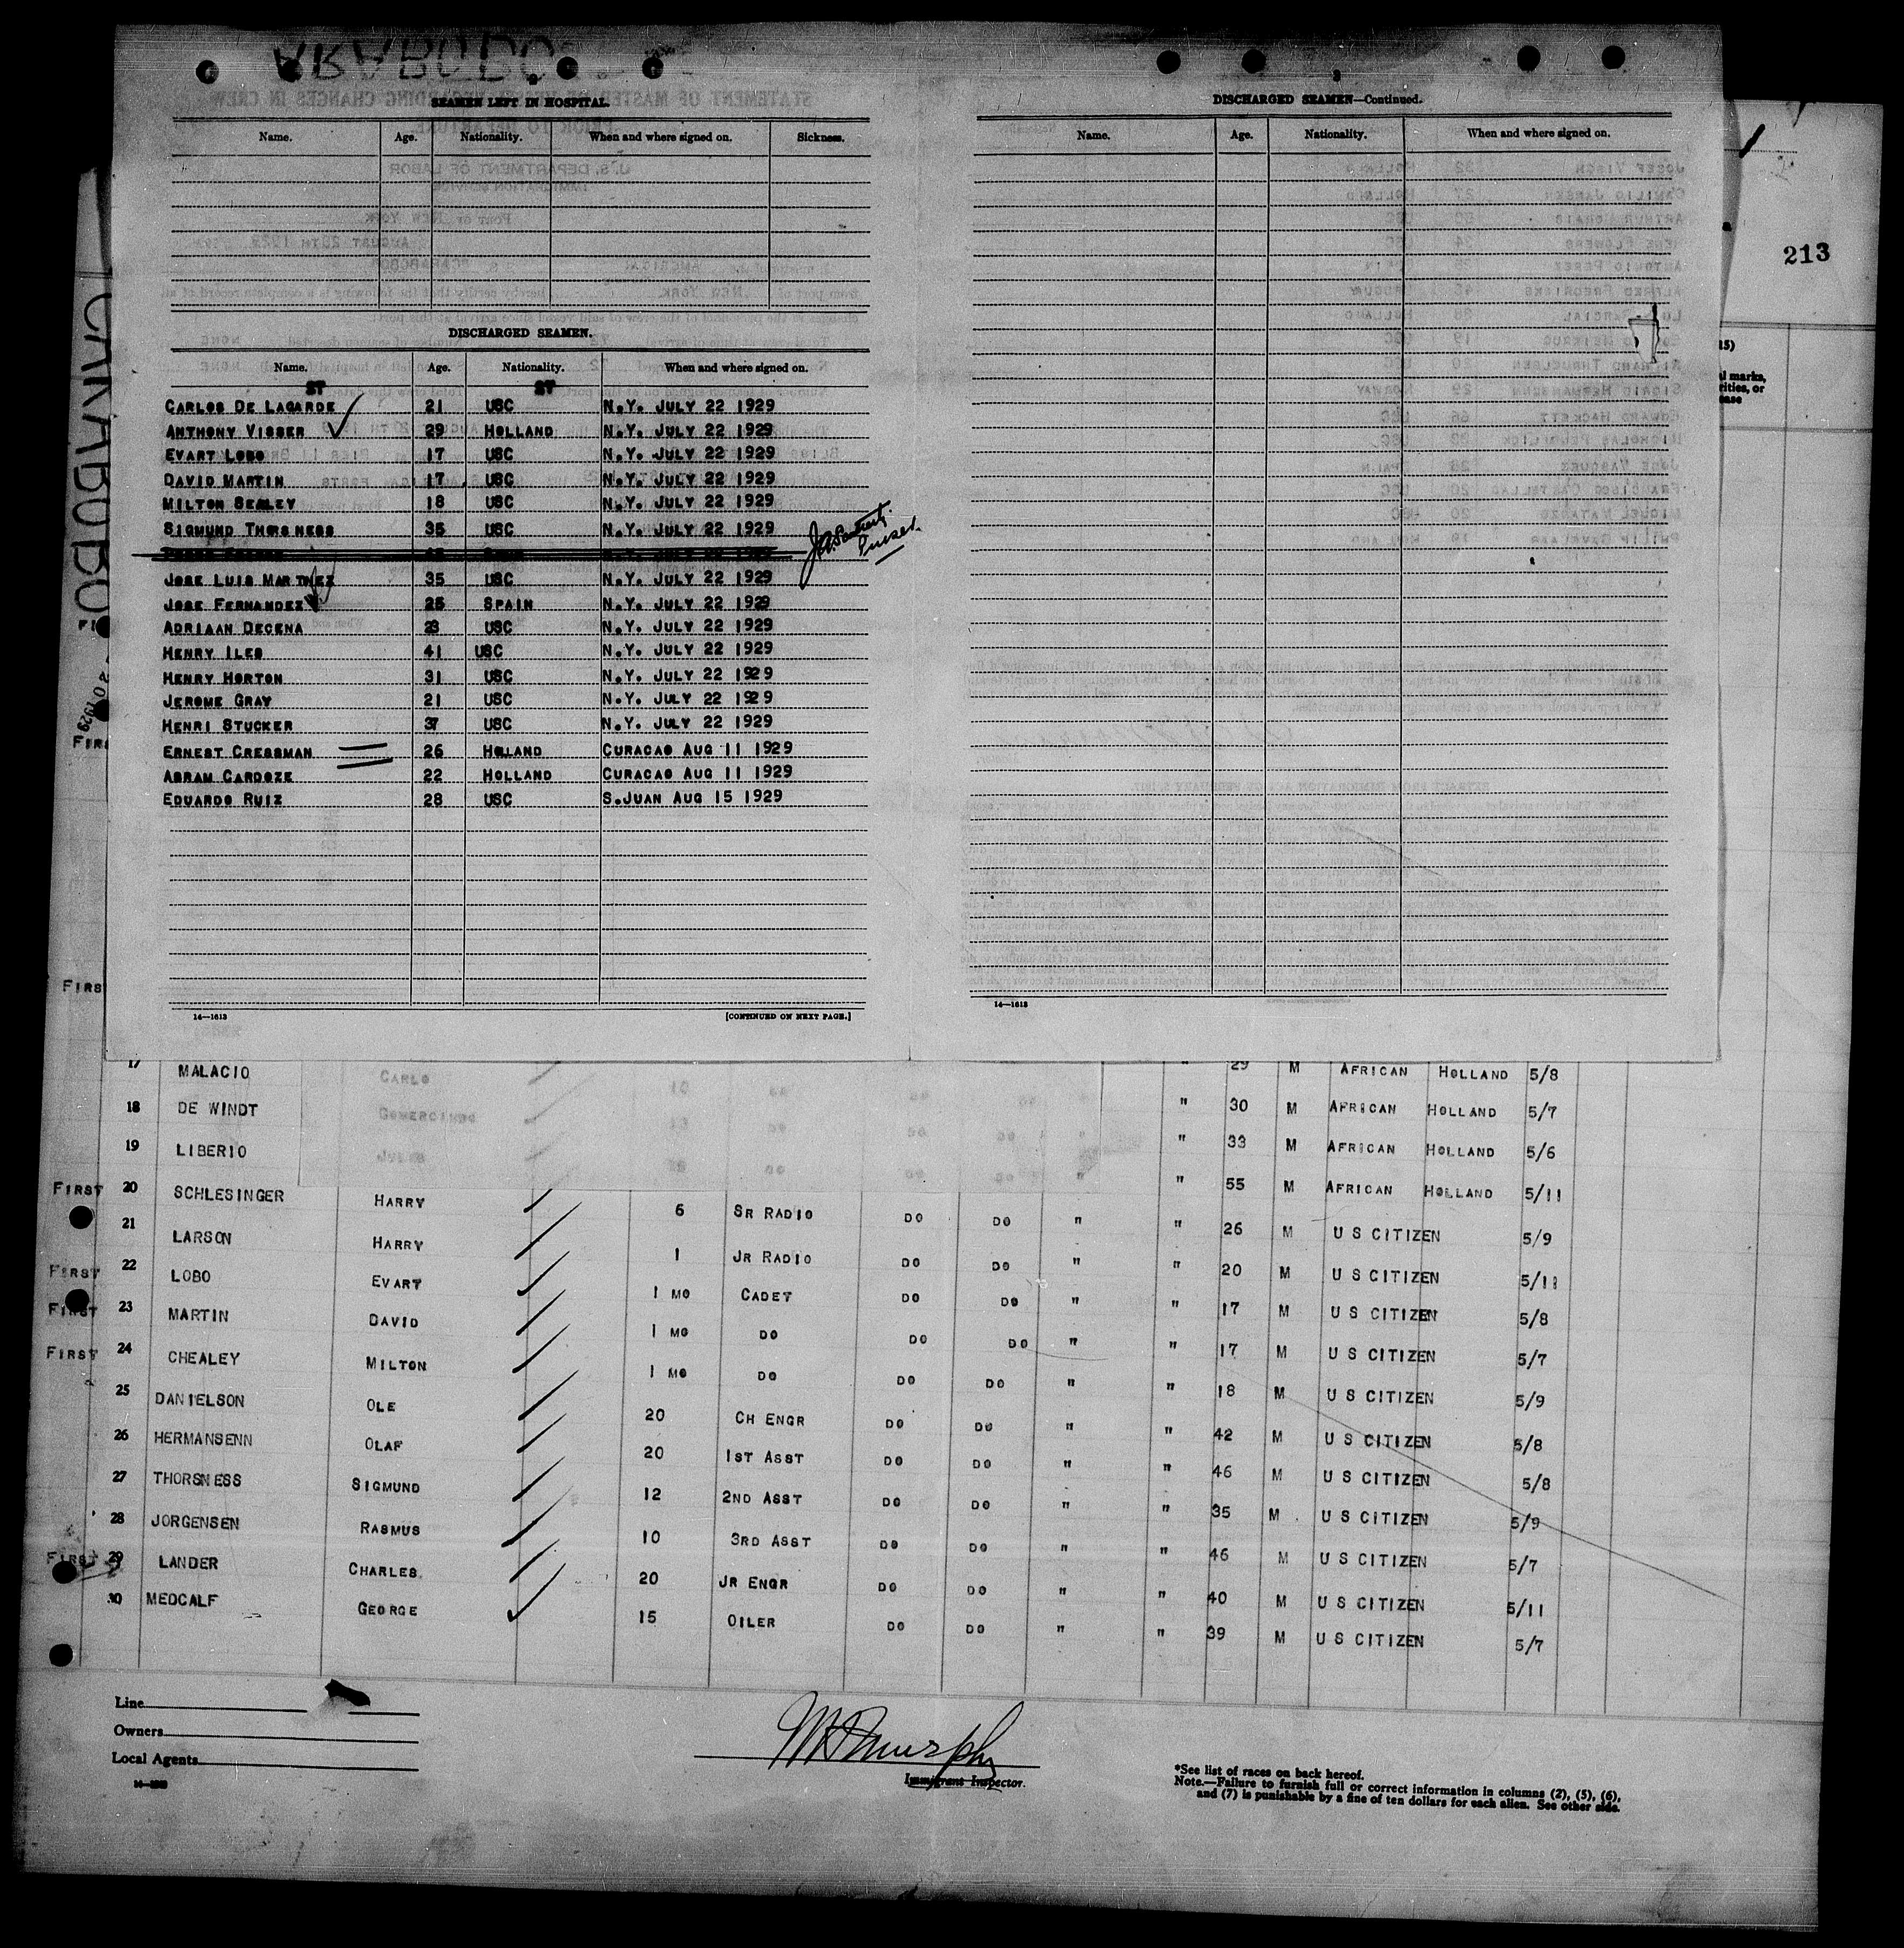 CARABOBO
SEAMEN LEFT IN HOSPITAL.
Name. Age. Nationality. When and where signed on. Sickness.
DISCHARGED SEAMEN.
Name. Age. Nationality. When and where signed on.
ST ST
CARLOS DE LAGARDE 21 USC N.Y. JULY 22 1929
ANTHONY VISSER 29 HOLLAND N.Y. JULY 22 1929
EVART LOBO 17 USC N.Y. JULY 22 1929
DAVID MARTIN 17 USC N.Y. JULY 22 1929
MILTON SEALEY 18 USC N.Y. JULY 22 1929
SIGMUND THORSNESS 35 USC N.Y. JULY 22 1929
Purser.
JOSE LUIS MARTINEZ 35 USC N.Y. JULY 22 1929
JOSE FERNANDEZ 25 SPAIN N.Y. JULY 22 1929
ADRIAAN DECENA 23 USC N.Y. JULY 22 1929
HENRY ILES 41 USC N.Y. JULY 22 1929
HENRY HORTON 31 USC N.Y. JULY 22 1929
JEROME GRAY 21 USC N.Y. JULY 22 1929
HENRI STUCKER 37 USC N.Y. JULY 22 1929
ERNEST CRESSMAN 26 HOLLAND CURACAO AUG 11 1929
ABRAM CARDOZE 22 HOLLAND CURACAO AUG 11 1929
EDUARDO RUIZ 28 USC S.JUAN AUG 15 1929
14—1613 [CONTINUED ON NEXT PAGE.]
3
DISCHARGED SEAMEN—Continued.
Name. Age. Nationality. When and where signed on.
14—1613
213
FIRS
17 MALACIO CARLO 29 M AFRICAN HOLLAND 5/8
18 DE WINDT GOMERCINDO " 30 M AFRICAN HOLLAND 5/7
19 LIBERIO JULES " 33 M AFRICAN HOLLAND 5/6
" 55 M AFRICAN HOLLAND 5/11
FIRST 20 SCHLESINGER HARRY 6 SR RADIO DO DO " " 26 M U S CITIZEN 5/9
21 LARSON HARRY 1 JR RADIO DO DO " " 20 M U S CITIZEN 5/11
FIRST 22 LOBO EVART 1 MO CADET DO DO " " 17 M U S CITIZEN 5/8
FIRST 23 MARTIN DAVID 1 MO DO DO DO " " 17 M U S CITIZEN 5/7
FIRST 24 CHEALEY MILTON 1 MO DO DO DO " " 18 M U S CITIZEN 5/9
25 DANIELSON OLE 20 CH ENGR DO DO " " 42 M U S CITIZEN 5/8
26 HERMANSENN OLAF 20 1ST ASST DO DO " " 46 M U S CITIZEN 5/8
27 THORSNESS SIGMUND 12 2ND ASST DO DO " " 35 M U S CITIZEN 5/9
28 JORGENSEN RASMUS 10 3RD ASST DO DO " " 46 M U S CITIZEN 5/7
FIRST 29 LANDER CHARLES 20 JR ENGR DO DO " " 40 M U S CITIZEN 5/11
30 MEDCALF GEORGE 15 OILER DO DO " " 39 M U S CITIZEN 5/7
Line
Owners
Local Agents
Murphy
Immigrant Inspector.
*See list of races on back hereof.
Note.—Failure to furnish full or correct information in columns (2), (5), (6),
and (7) is punishable by a fine of ten dollars for each alien. See other side.